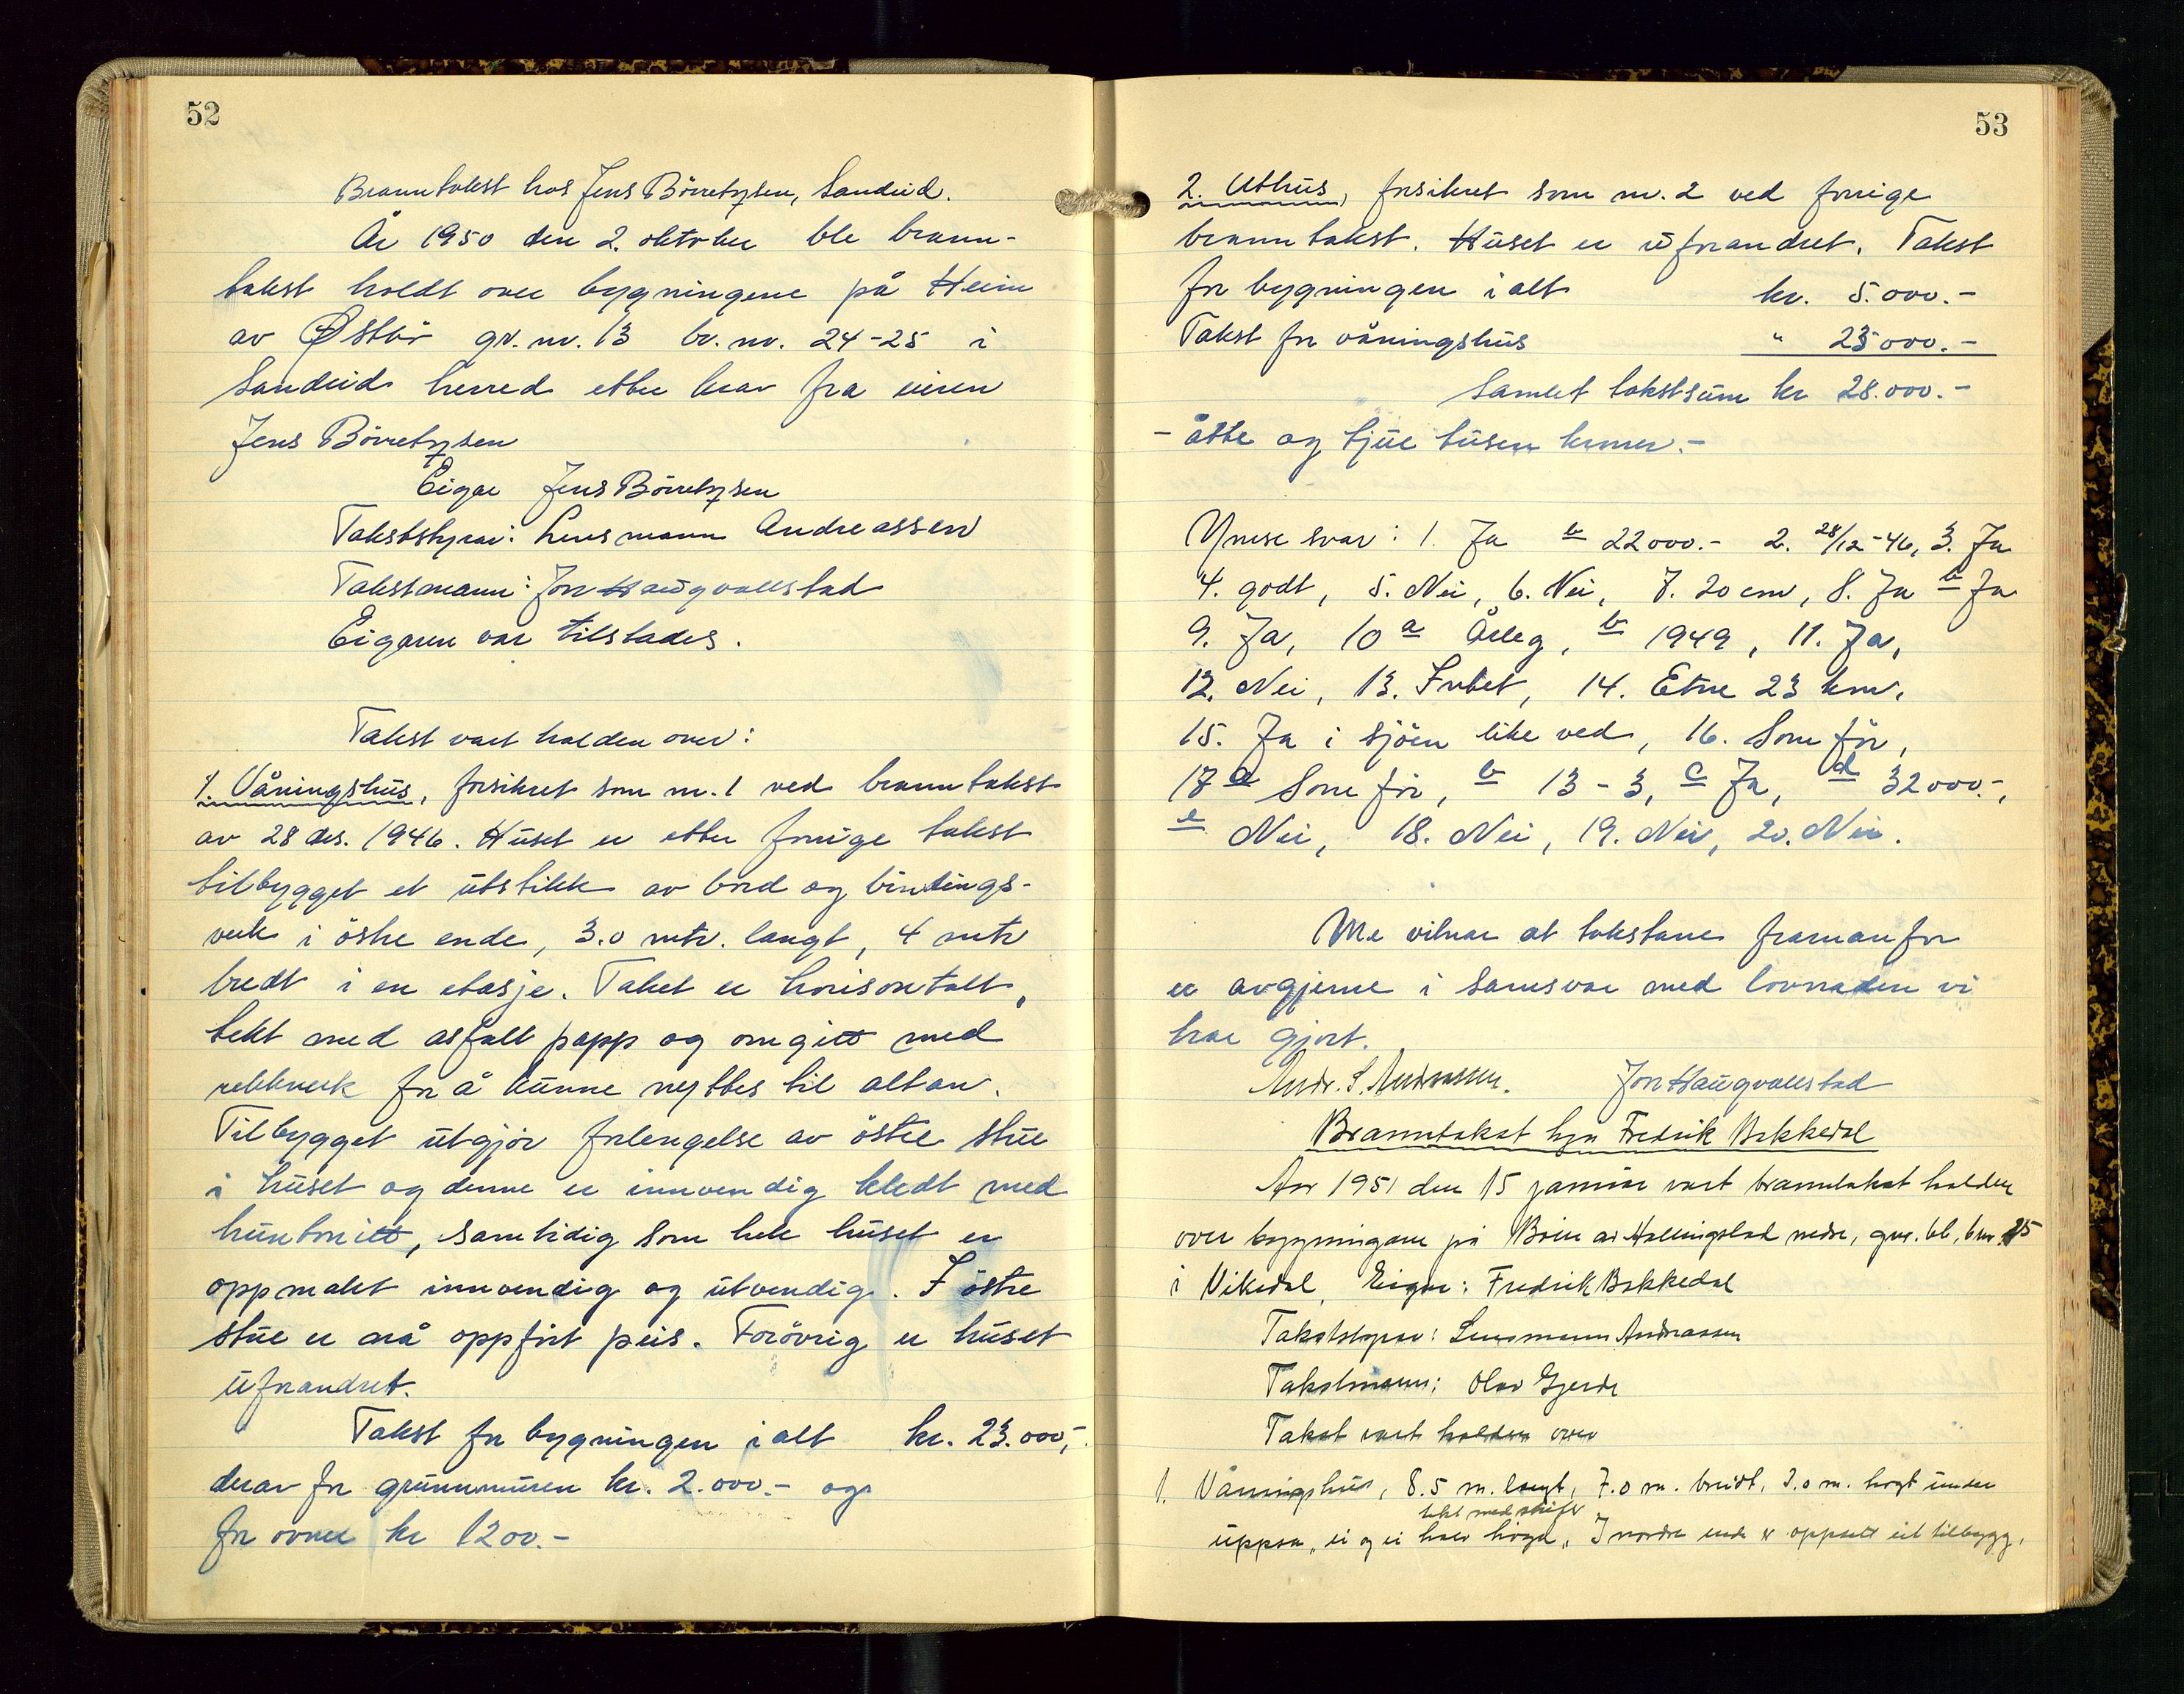 52
Branntakst hos Jens Börretzsen, Sandeid.
År 1950 den 2. oktober ble brann-
takst holdt over bygningene på Heim
av Østbö gr. nr. 13 br. nr. 24-25 i
Sandeid herred etter krav fra eieren
Jens Börretzsen
Eigar Jens Börretzsen
Takststyrar: Lensmann Andreassen
Takstmann: Jon Haugvallstad
Eigaren var tilstades.
Takst vart halden over:
1. Våningshus, forsikret som nr. 1 ved branntakst
av 28 des. 1946. Huset er etter forrige takst
tilbygget et utstikk av bord og bindings-
verk i östre ende, 3.0 mtr. langt, 4 mtr
bredt i en etasje. Taket er horisontalt,
tekt med asfalt papp og omgitt med
rekkverk for å kunne nyttes til altan.
Tilbygget utgjör forlengelse av östre stue
i huset og denne er innvendig kledt med
huntonitt, samtidig som hele huset er
oppmalet innvendig og utvendig. I östre
stue er nå oppfört peis. Forövrig er huset
uforandret.
Takst for bygningen i alt kr. 23.000,-
derav for grunnmuren kr. 2.000.- og
for ovner kr 1200.-
53
2. Uthus, forsikret som nr. 2 ved forrige
branntakst. Huset er uforandret. Takst
for bygningen i alt kr. 5.000.-
Takst for våningshus " 23000.-
Samlet takstsum kr 28.000.-
- åtte og tjue tusen kroner.-
Ymse svar: 1. Ja b 22000.- 2. 28/12-46, 3. Ja
4. godt, 5. Nei, 6. Nei, 7. 20 cm, 8. Ja b Ja
9. Ja, 10 a Årleg, b 1949, 11. Ja,
12. Nei, 13. Intet, 14. Etne 23 km,
15. Ja i sjöen like ved, 16. Som för,
17 a Som för, b 13-3, c Ja, d 32000.-,
e Nei, 18. Nei, 19. Nei, 20. Nei.
Me vitnar at takstane framanfor
er avgjerne i samsvar med lovnaden vi
har gjort.
Andr. S. Andreassen. Jon Haugvallstad
Branntakst hjå Fredrik Bakkedal
Aar 1951 den 15 januar vart branntakst halden
over bygningane på av Hallingstad nedre, gnr. 61, bnr. 25
i Vikedal, Eigar: Fredrik Bakkedal
Takststyrar: Lensmann Andreassen
Takstmann: Olav Gjerde
Takst vart halden over
1. Våningshus, 8.5 m. langt, 7.0 m. breidt, 3.0 m. högt under
tekt med skifer
uppsa, ei og ei halv högd, I nordre ende er oppsett eit tilbygg,